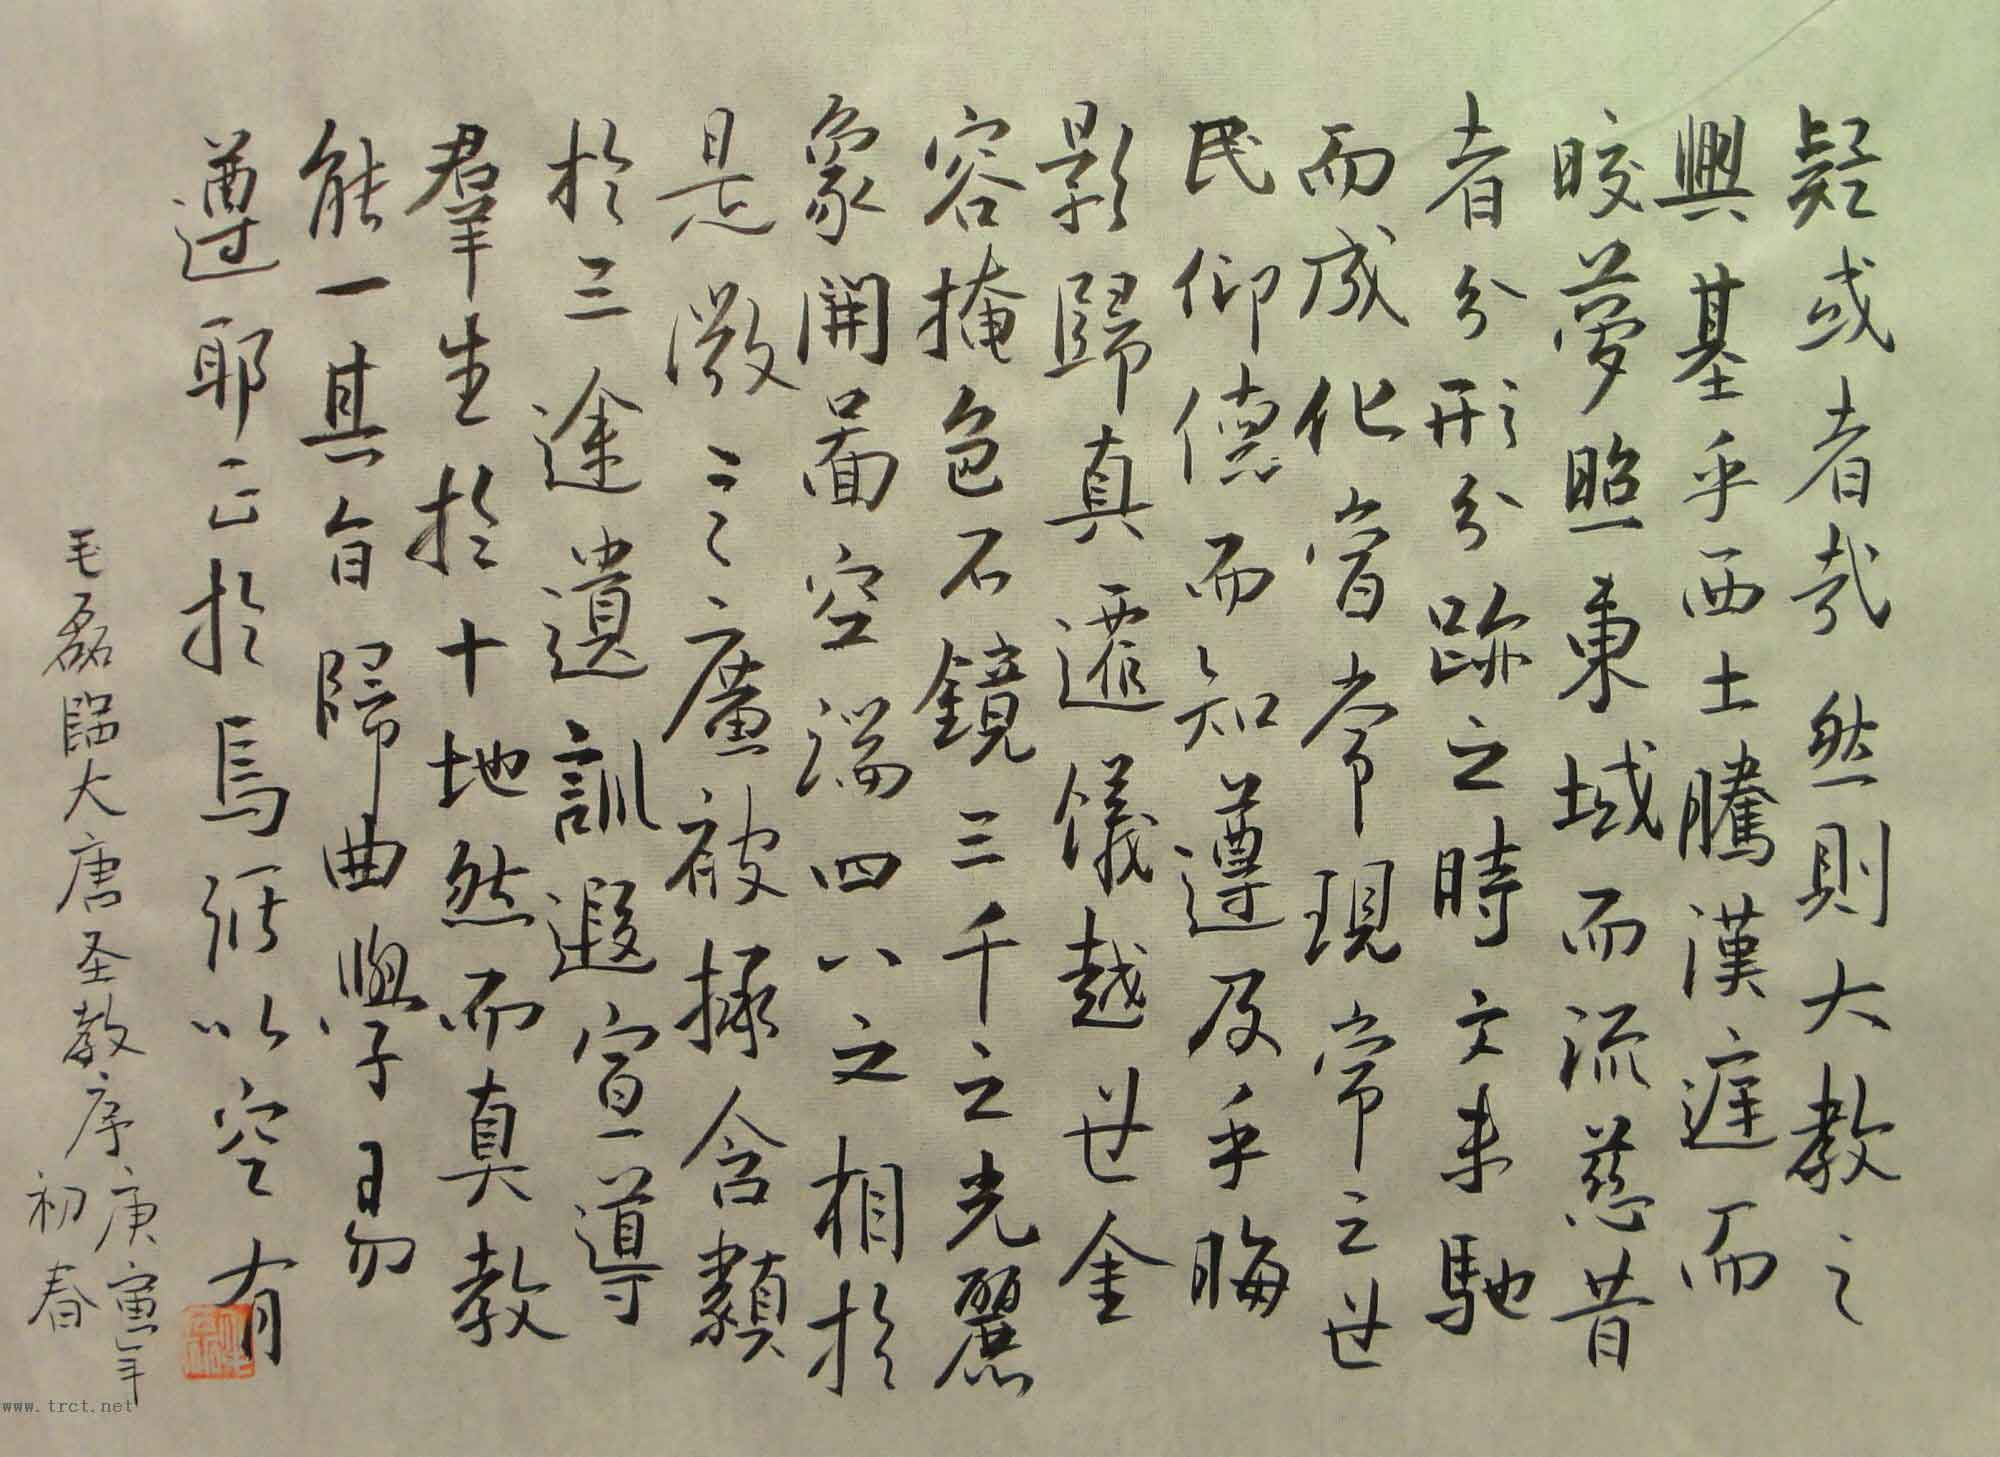 疑或者哉然則大教之
興基乎西土騰漢庭而
晈夢照東域而流慈昔
者分形分跡之時文未馳
而成化當常常現常之世
民仰德而知遵及乎晦
影歸真遷儀越世金
容掩色不鏡三千之光麗
象開圖空端四八之相於
是微言廣被拯含類
於三途遺訓遐宣導
羣生於十地然而真教
難一其旨歸曲學易
遵耶正於焉紛以空有
毛磊臨大唐圣教序庚寅年
初春
www.trct.net